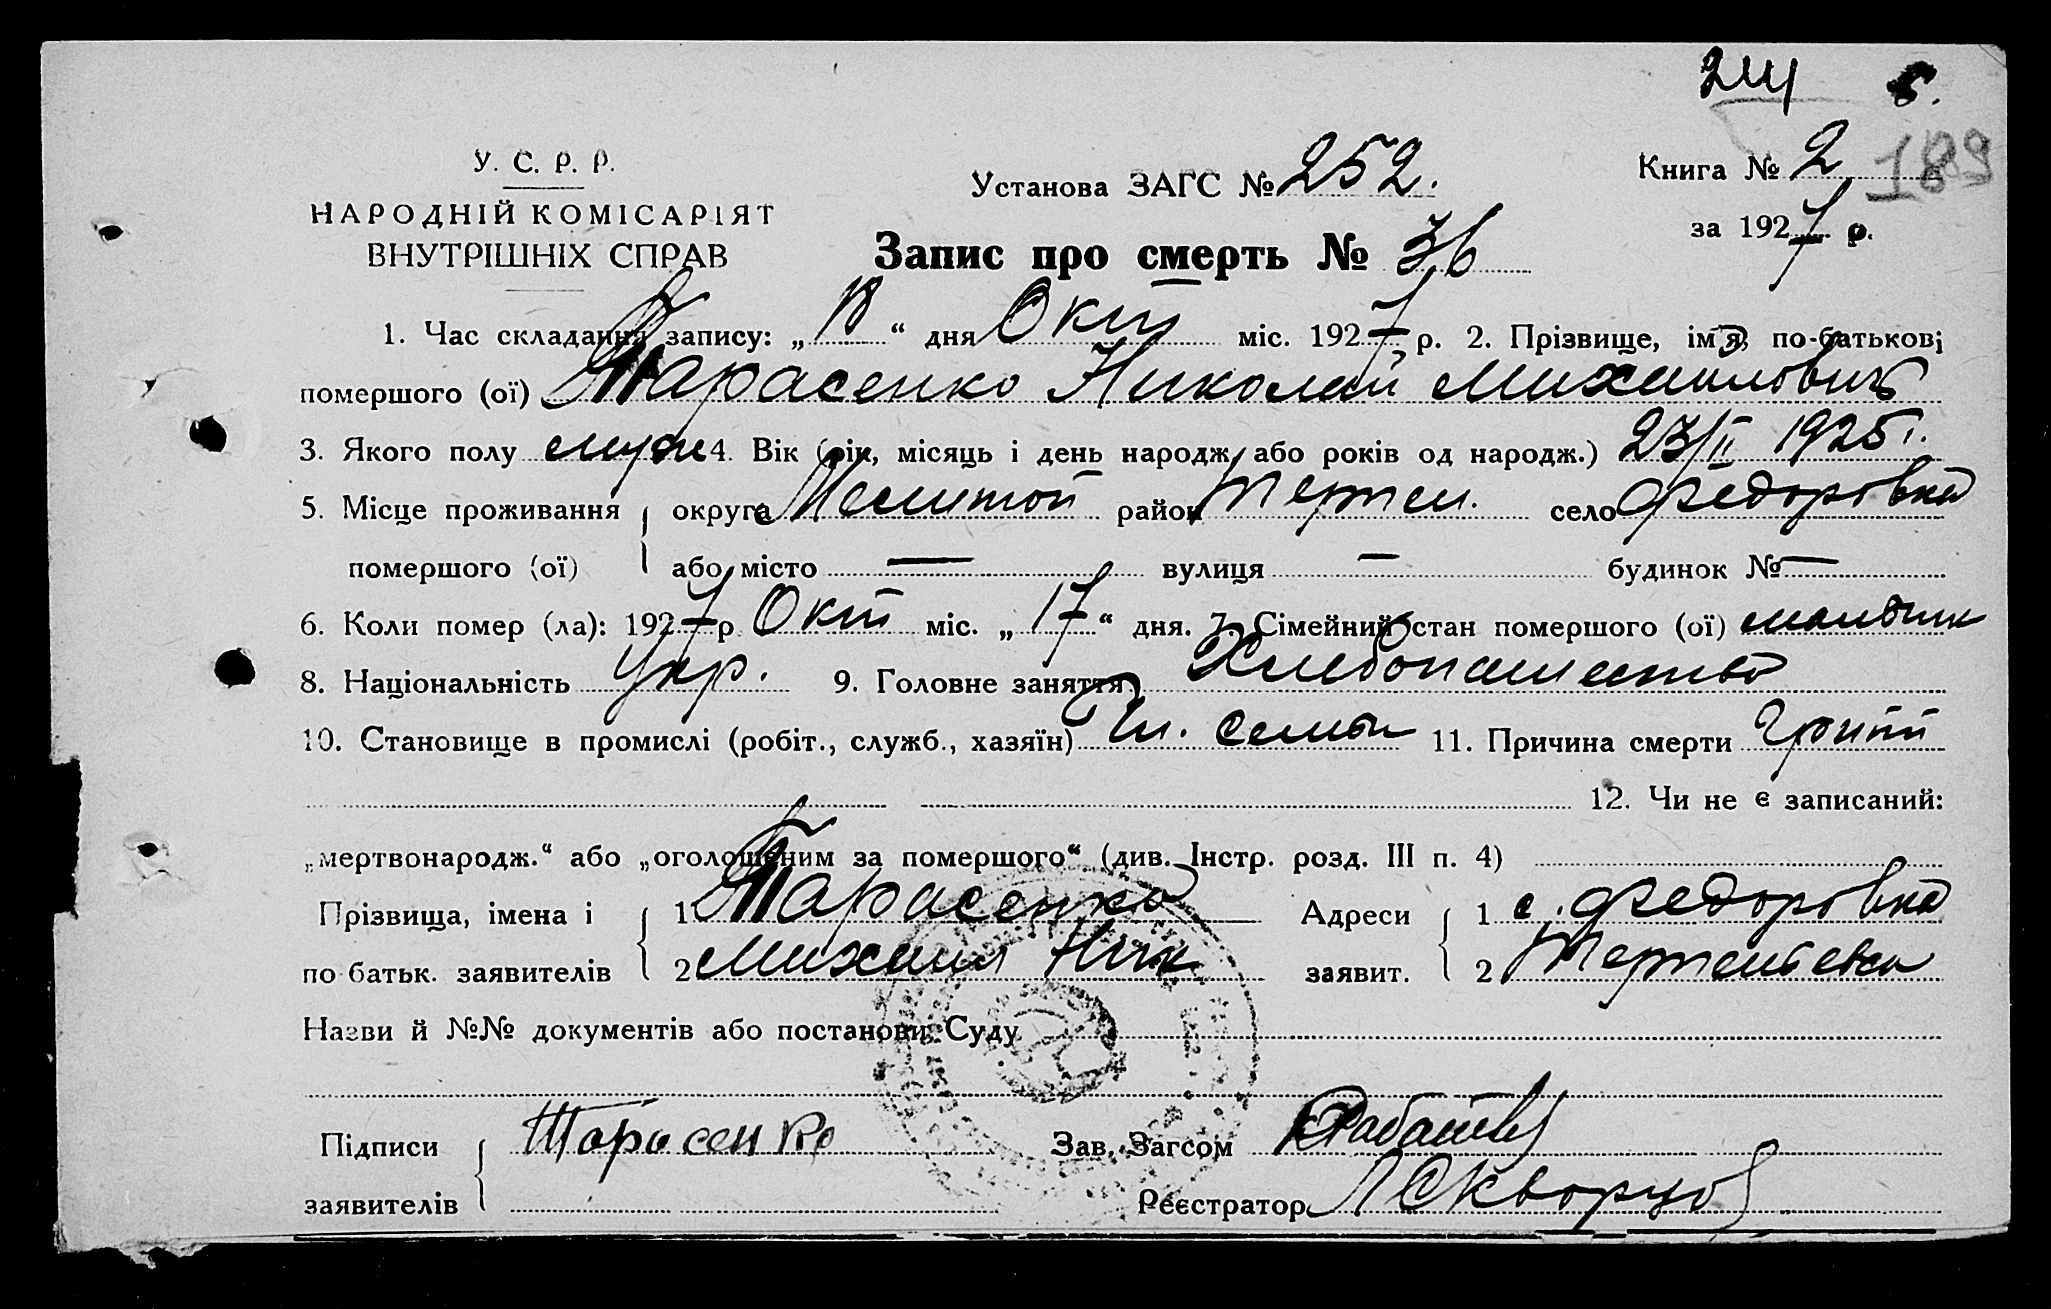 У. С. Р. Р.
НАРОДНІЙ КОМІСАРІЯТ
ВНУТРІШНІХ СПРАВ
189
Установа ЗАГС № 252.
Книга № 2
за 1927 р.
Запис про смерть № 36
1. Час складання запису: „18“ дня Окт міс. 1927 р. 2. Прізвище, ім'я, по-батькові
помершого (ої) Тарасенко Николай Михайлович
3. Якого полу муж 4. Вік (рік, місяць і день народж. або років од народж.) 23/II 1925 г.
5. Місце проживання округа Мелитоп район Терпен. село Федоровка
помершого (ої) або місто — вулиця — будинок № —
6. Коли помер (ла): 1927 р. Окт міс. „17“ дня. 7. Сімейний стан помершого (ої) мальчик
8. Національність Укр. 9. Головне заняття Хлебопашество
10. Становище в промислі (робіт., служб., хазяїн) Чл. семьи 11. Причина смерти Грипп
12. Чи не є записаний:
„мертвонародж.“ або „оголошеним за помершого“ (див. Інстр. розд. III п. 4)
Прізвища, імена і 1 Тарасенко Адреси 1 с. Федоровка
по батьк. заявителів 2 Михаил Ник заявит. 2 Терпеньевка
Назви й №№ документів або постанови Суду
Підписи Тарасенко Зав. Загсом
заявителів Реєстратор Л Скворцов